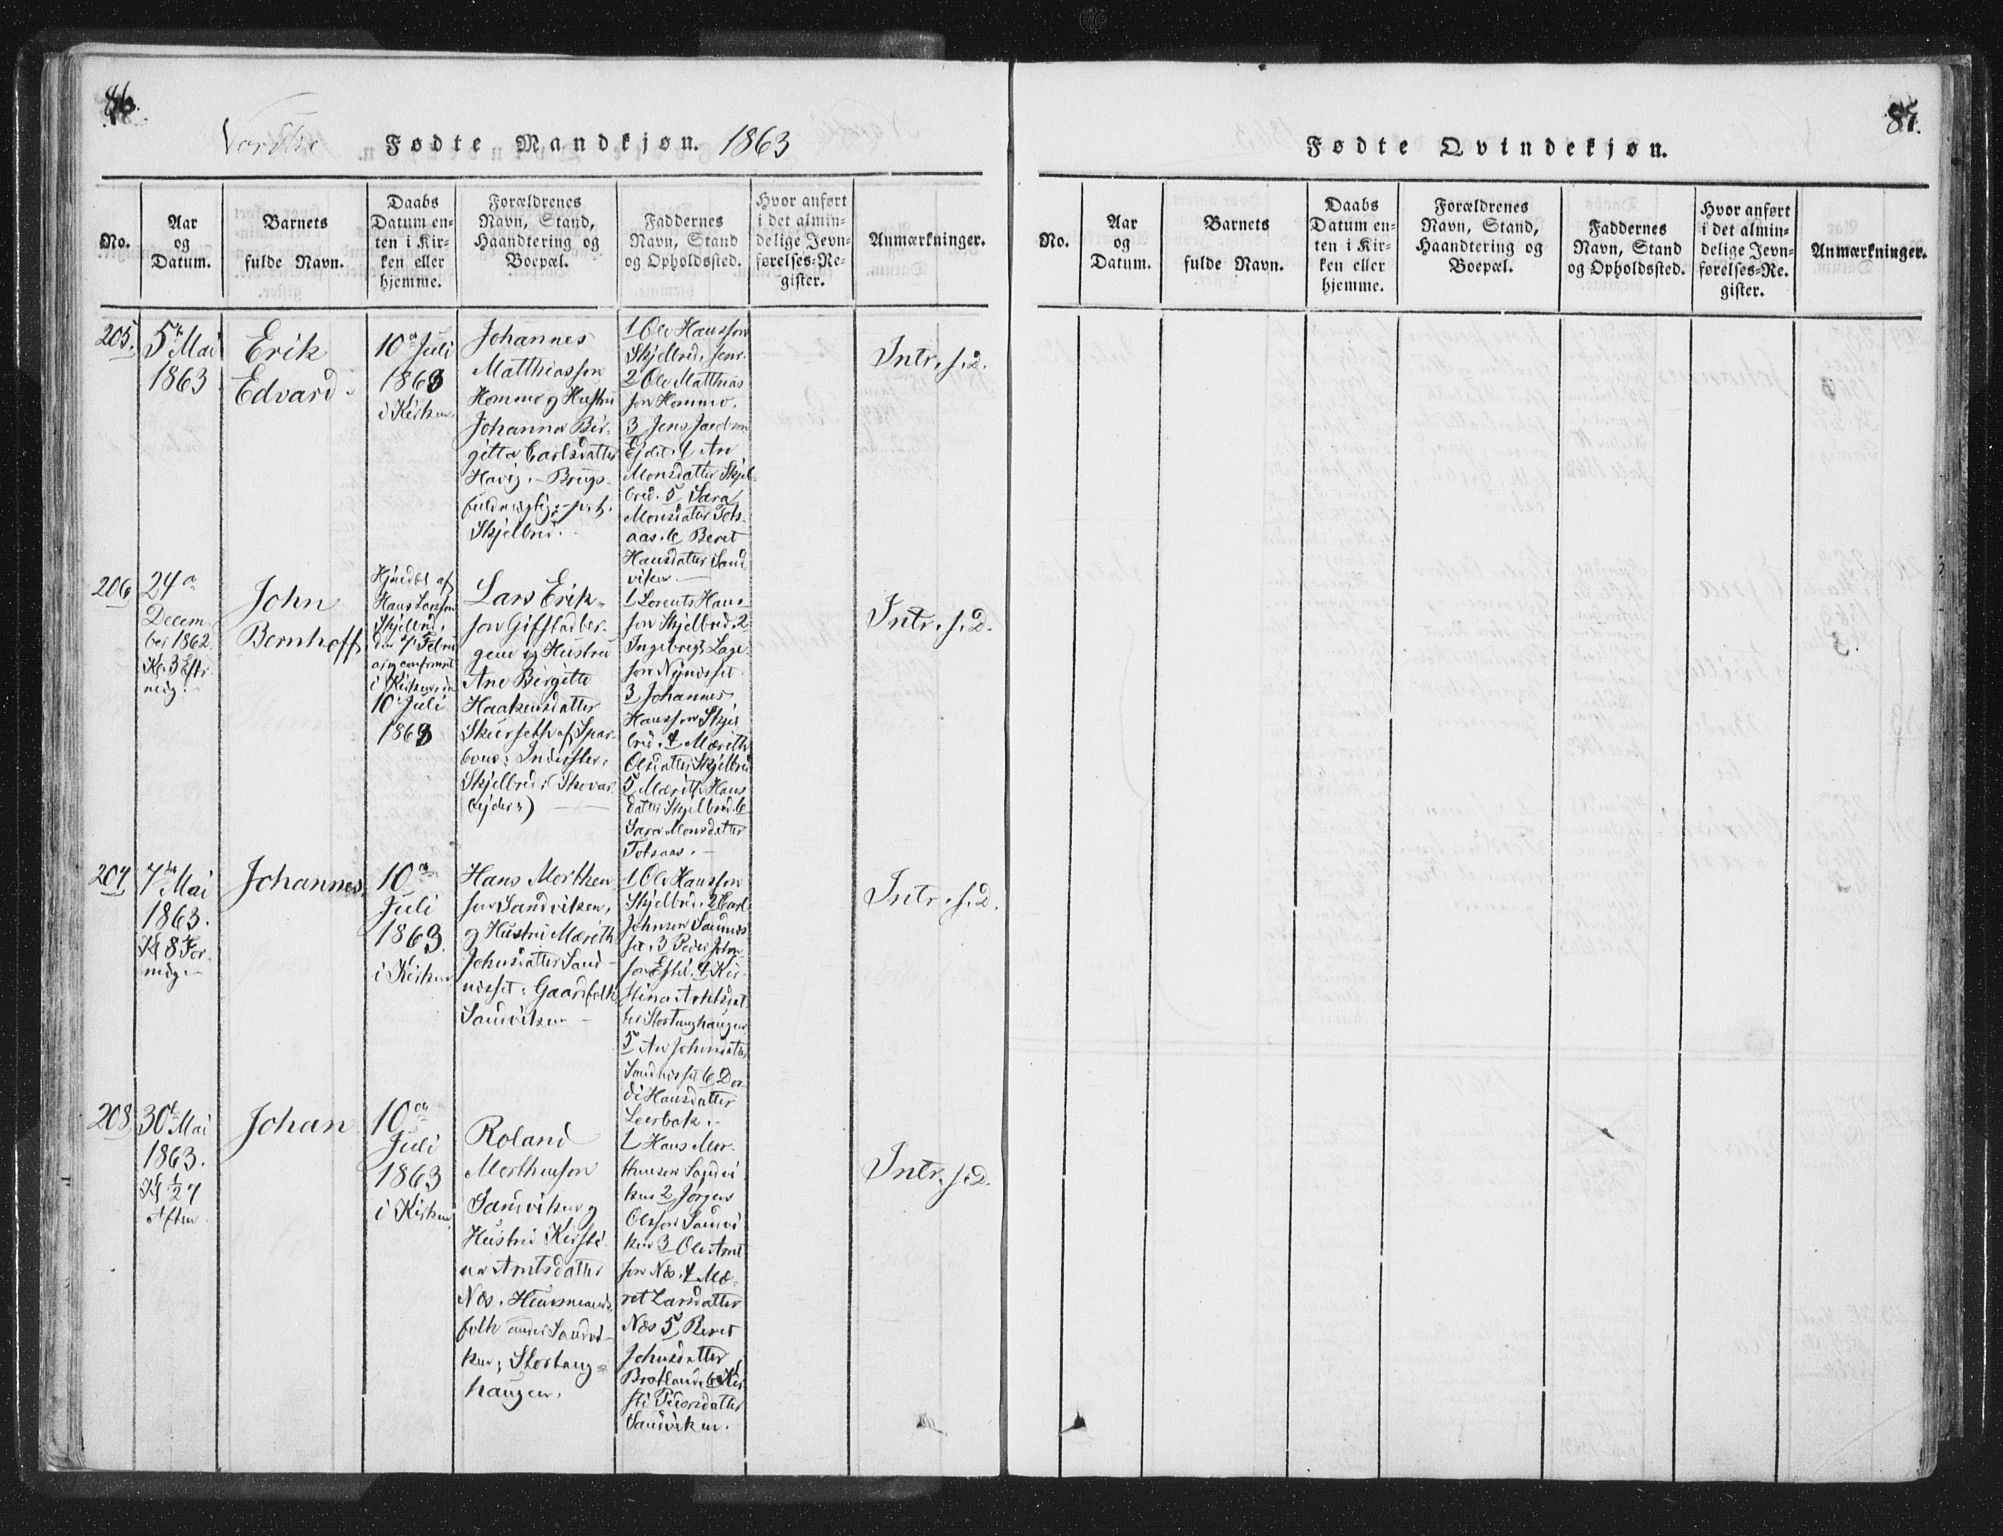 86.
Nordlie Fødte Mandkjøn. 1863
No.
Aar
og
Datum.
Barnets
fulde Navn.
Daabs
Datum en-
ten i Kir-
ken eller
hjemme.
Forældrenes
Navn, Stand,
Haandtering og
Boepæl.
Faddernes
Navn, Stand
og Opholdssted.
Hvor anført
i det almin-
delige Jevn-
førelses-Re-
gister.
Anmærkninger.
205.
5te Mai
1863
Erik
Edvard
10de Juli
1863
i Kirken
Johannes
Matthiasson
Hommo og Hustru
Johanna Bir-
gitta Carlsdatter
Havig. - Brugs-
Skjelbred.
1 Ole Hansson
Skjelbred, senr.
2 Ole Matthias
son Hommo.
3 Jens Jacobson
Ejdet. 4 An
Monsdatter Skjel-
bred. 5 Sara
Monsdatter Tots-
aas. 6 Beret
Hansdatter Sand
viken
Intr. s. D.
206
24de
Decem-
ber 1862.
Kl. 3 Eftr-
midg.
John
Bernhoff
Hjemdøbt af
Hans Larsson
Skjelbred,
den 7de Febru
ar og confirmert
i Kirken den
10de Juli
1863
Lars Erik-
son Gifstadber-
gene og Hustru
Ane Birgitte
Haakensdatter
Skursethaf Spar-
boue: Inderster:
Skjelbred: (Skovar-
bejdere)
1 Lorents Hans-
son Skjelbred. 2
Ingebregt Lage-
son Nynisset.
3 Johannes
Hansson Skjel
bred. 4 Mærith
Olsdatter Skjelbred
5 Mærith Hans
datter Skjelbred. 6
Sara Monsdatter
Totsaas.
Intr. s. D.
207
7de Mai
1863.
Kl 8 For-
midg.
Johannes
10de
Juli
1863.
i Kirken
Hans Morthen
son Sandviken,
og Hustru Mærith
Johnsdatter Sand-
nisset: Gaardfolk
Sandviken
1 Ole Hansson
Skjelbred. 2 Carl
Johnson Sandnis
set. 3 Peder John-
son Estil. 4 Kir-
stina Arntsdat
ter Stortanghaugen
5 An Johnsdatter
Sandnisset 6 Dor-
de Hansdatter
Leerbak.
Intr. s. D.
208
30te Mai
1863.
Kl ½7
Aften
Johan
10de
Juli
1863
i Kirken
Roland
Morthenson
Sandviken og
Hustru Kirsti-
na Arntsdatter
Næs. Huusmands-
folk under Sandvi-
ken; Stortang-
haugen.
1 Hans Mor-
thenson Sandvi
ken 2 Jørgen
Olsson Sandvi
ken 3 Ole Arnt
son Næs. 4 Mæ-
ret Larsdatter
Næs 5 Beret
Johnsdatter
Bratland. 6 Kir-
sti Pedersdatter
Sandviken.
Intr. s. D.
87.
Fødte Qvindekjøn.
No.
Aar
og
Datum.
Barnets
fulde Navn.
Daabs
Datum en-
ten i Kir-
ken eller
hjemme.
Forældrenes
Navn, Stand,
Haandtering og
Boepæl.
Faddernes
Navn, Stand
og Opholdssted.
Hvor anført
i det almin-
delige Jevn-
førelses-Re-
gister.
Anmærkninger.